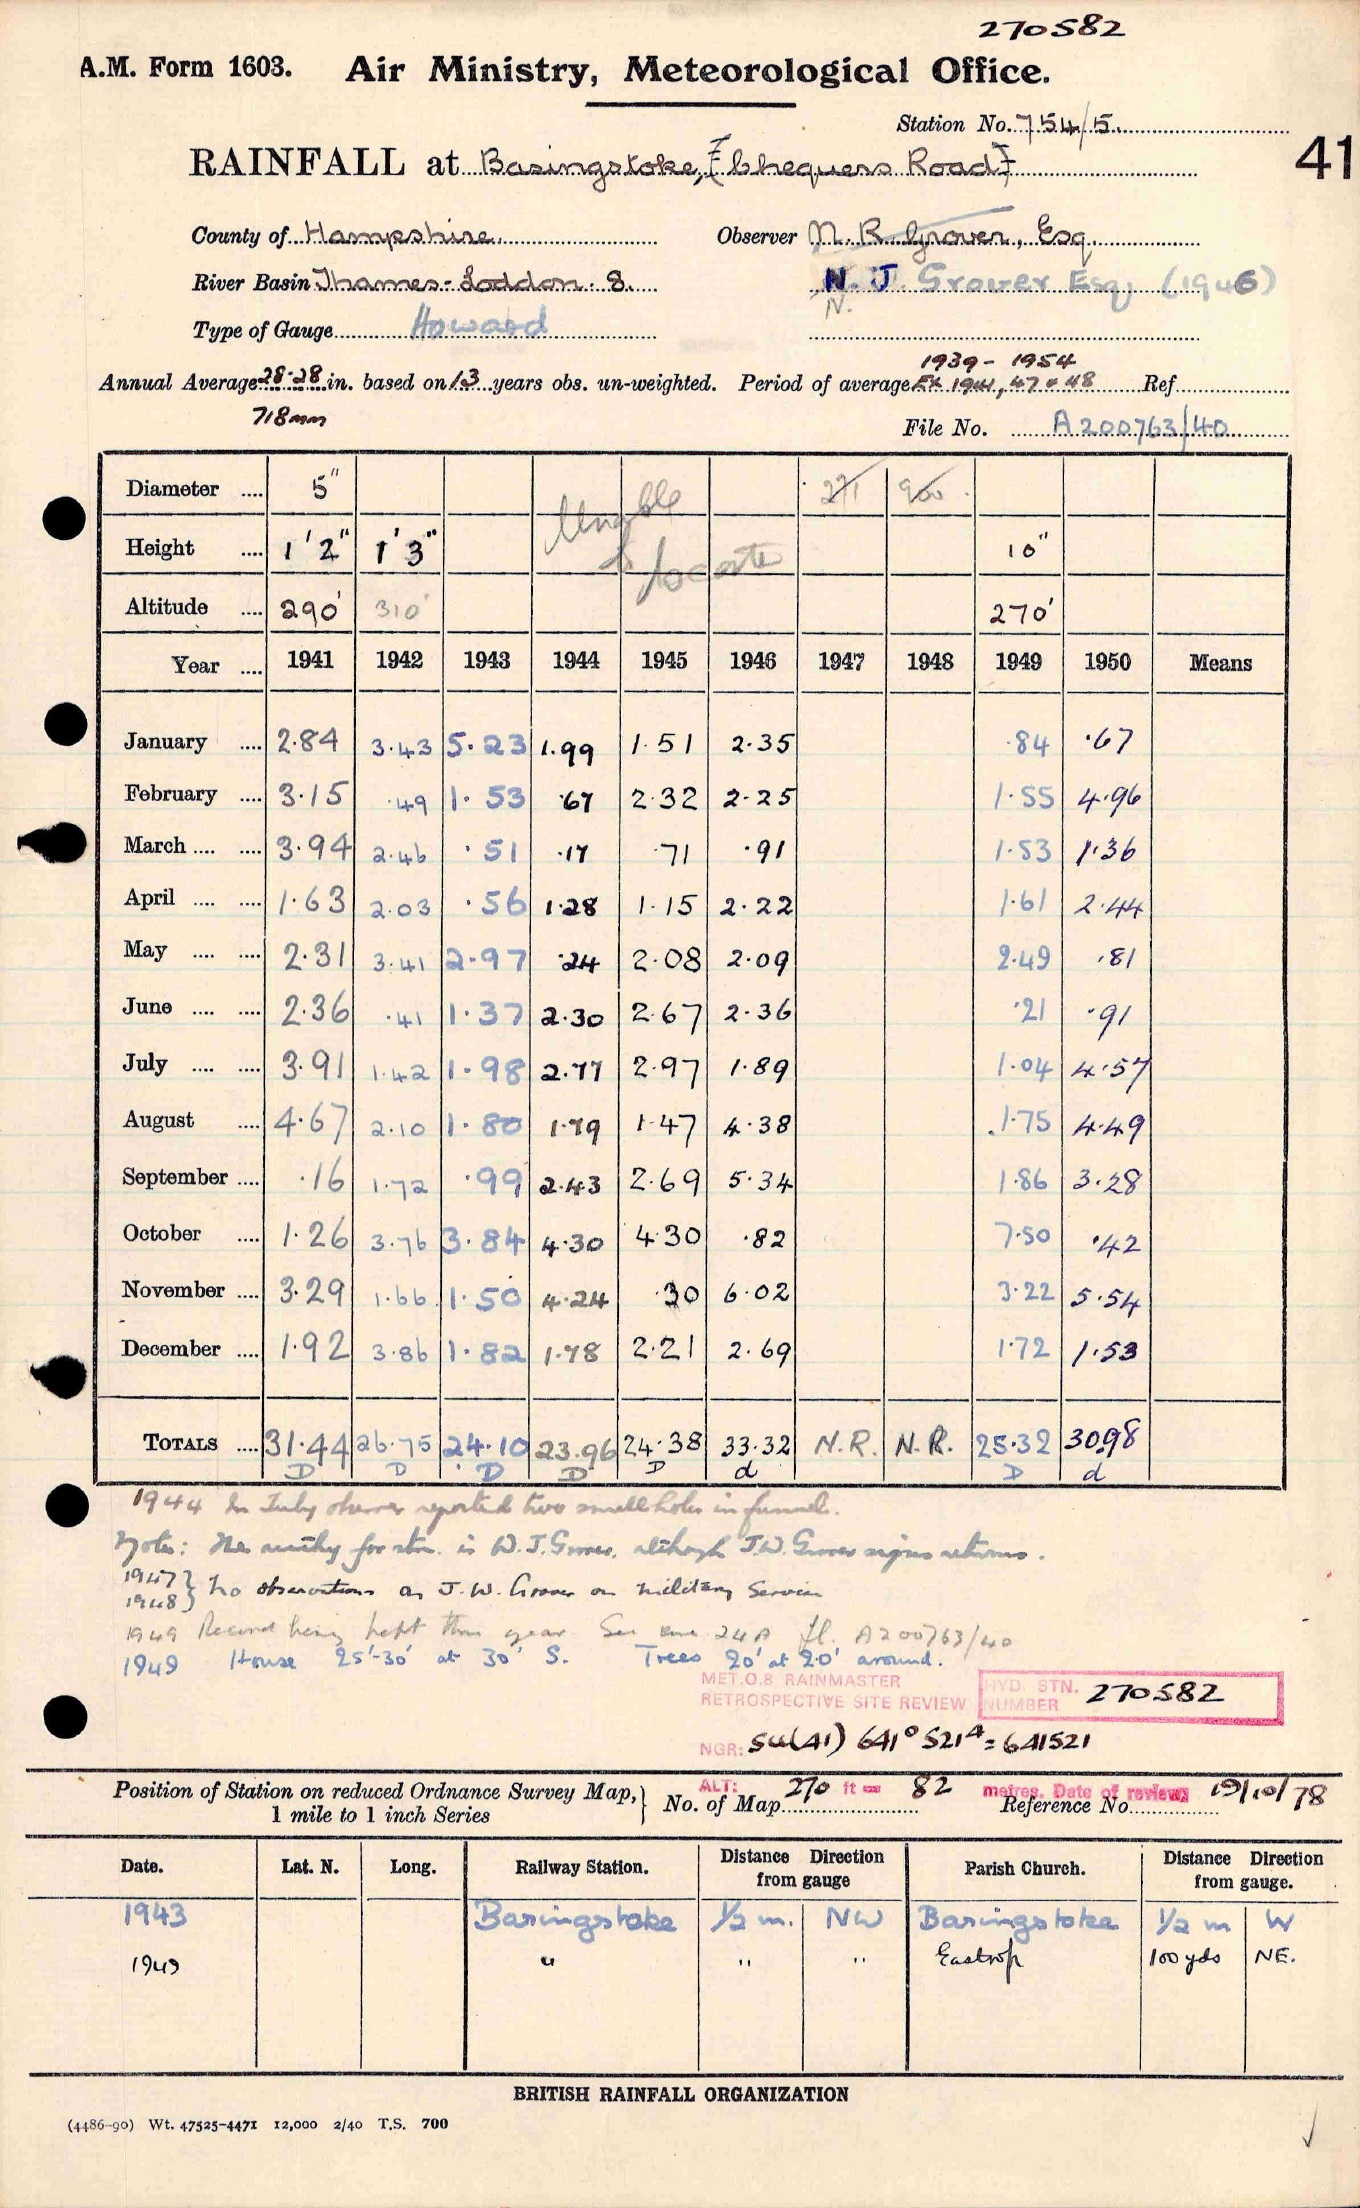 270582
A.M. Form 1603. Air Ministry, Meteorological Office.
Station No. 754/5.
41
RAINFALL at Basingstoke, [Chequers Road]
County of Hampshire. Observer N. R. Grover, Esq.
River Basin Thames-Loddon. 8. N. J. Grover Esq. (1946)
N.
Type of Gauge Howard
1939 - 1954
Annual Average 28.28 in. based on 13 years obs. un-weighted. Period of average Ex 1941, 47 & 48 Ref
718mm
File No. A200763/40
Diameter .... 5" 271 900
Unable to locate
Height .... 1'2" 1'3" 10"
Altitude .... 290' 310' 270'
Year .... 1941 1942 1943 1944 1945 1946 1947 1948 1949 1950 Means
January .... 2.84 3.43 5.23 1.99 1.51 2.35 .84 .67
February .... 3.15 .49 1.53 .67 2.32 2.25 1.55 4.96
March .... .... 3.94 2.46 .51 .17 .71 .91 1.53 1.36
April .... .... 1.63 2.03 .56 1.28 1.15 2.22 1.61 2.44
May .... .... 2.31 3.41 2.97 .24 2.08 2.09 2.49 .81
June .... .... 2.36 .41 1.37 2.30 2.67 2.36 .21 .91
July .... .... 3.91 1.42 1.98 2.77 2.97 1.89 1.04 4.57
August .... 4.67 2.10 1.80 1.79 1.47 4.38 1.75 4.49
September .... .16 1.72 .99 2.43 2.69 5.34 1.86 3.28
October .... 1.26 3.76 3.84 4.30 4.30 .82 7.50 .42
November .... 3.29 1.66 1.50 4.24 .30 6.02 3.22 5.54
December .... 1.92 3.86 1.82 1.78 2.21 2.69 1.72 1.53
TOTALS .... 31.44 26.75 24.10 23.96 24.38 33.32 N.R. N.R. 25.32 30.98
D D D D D d D d
1944 In July observer reported two small holes in funnel.
Note: The authy for stn. is W. J. Grover, although J.W. Grover signs returns.
1947 } No observations as J. W. Grover on military service
1948 }
1949 Record being kept this year See enc 24A fl. A200763/40
1949 House 25'-30' at 30' S. Trees 20' at 20' around.
MET.O.8 RAINMASTER
RETROSPECTIVE SITE REVIEW
HYD. STN. NUMBER 270582
NGR: SU(41) 641⁰ 521⁴ = 641521
ALT: 270 ft = 82 metres. Date of review: 19/10/78
Position of Station on reduced Ordnance Survey Map, } No. of Map Reference No.
1 mile to 1 inch Series
Date. Lat. N. Long. Railway Station. Distance Direction from gauge Parish Church. Distance Direction from gauge.
1943 Basingstoke 1/2 m. NW Basingstoke 1/2 m W
1949 " " " Eastrop 100 yds NE.
BRITISH RAINFALL ORGANIZATION
(4486-90) Wt. 47525-4471 12,000 2/40 T.S. 700